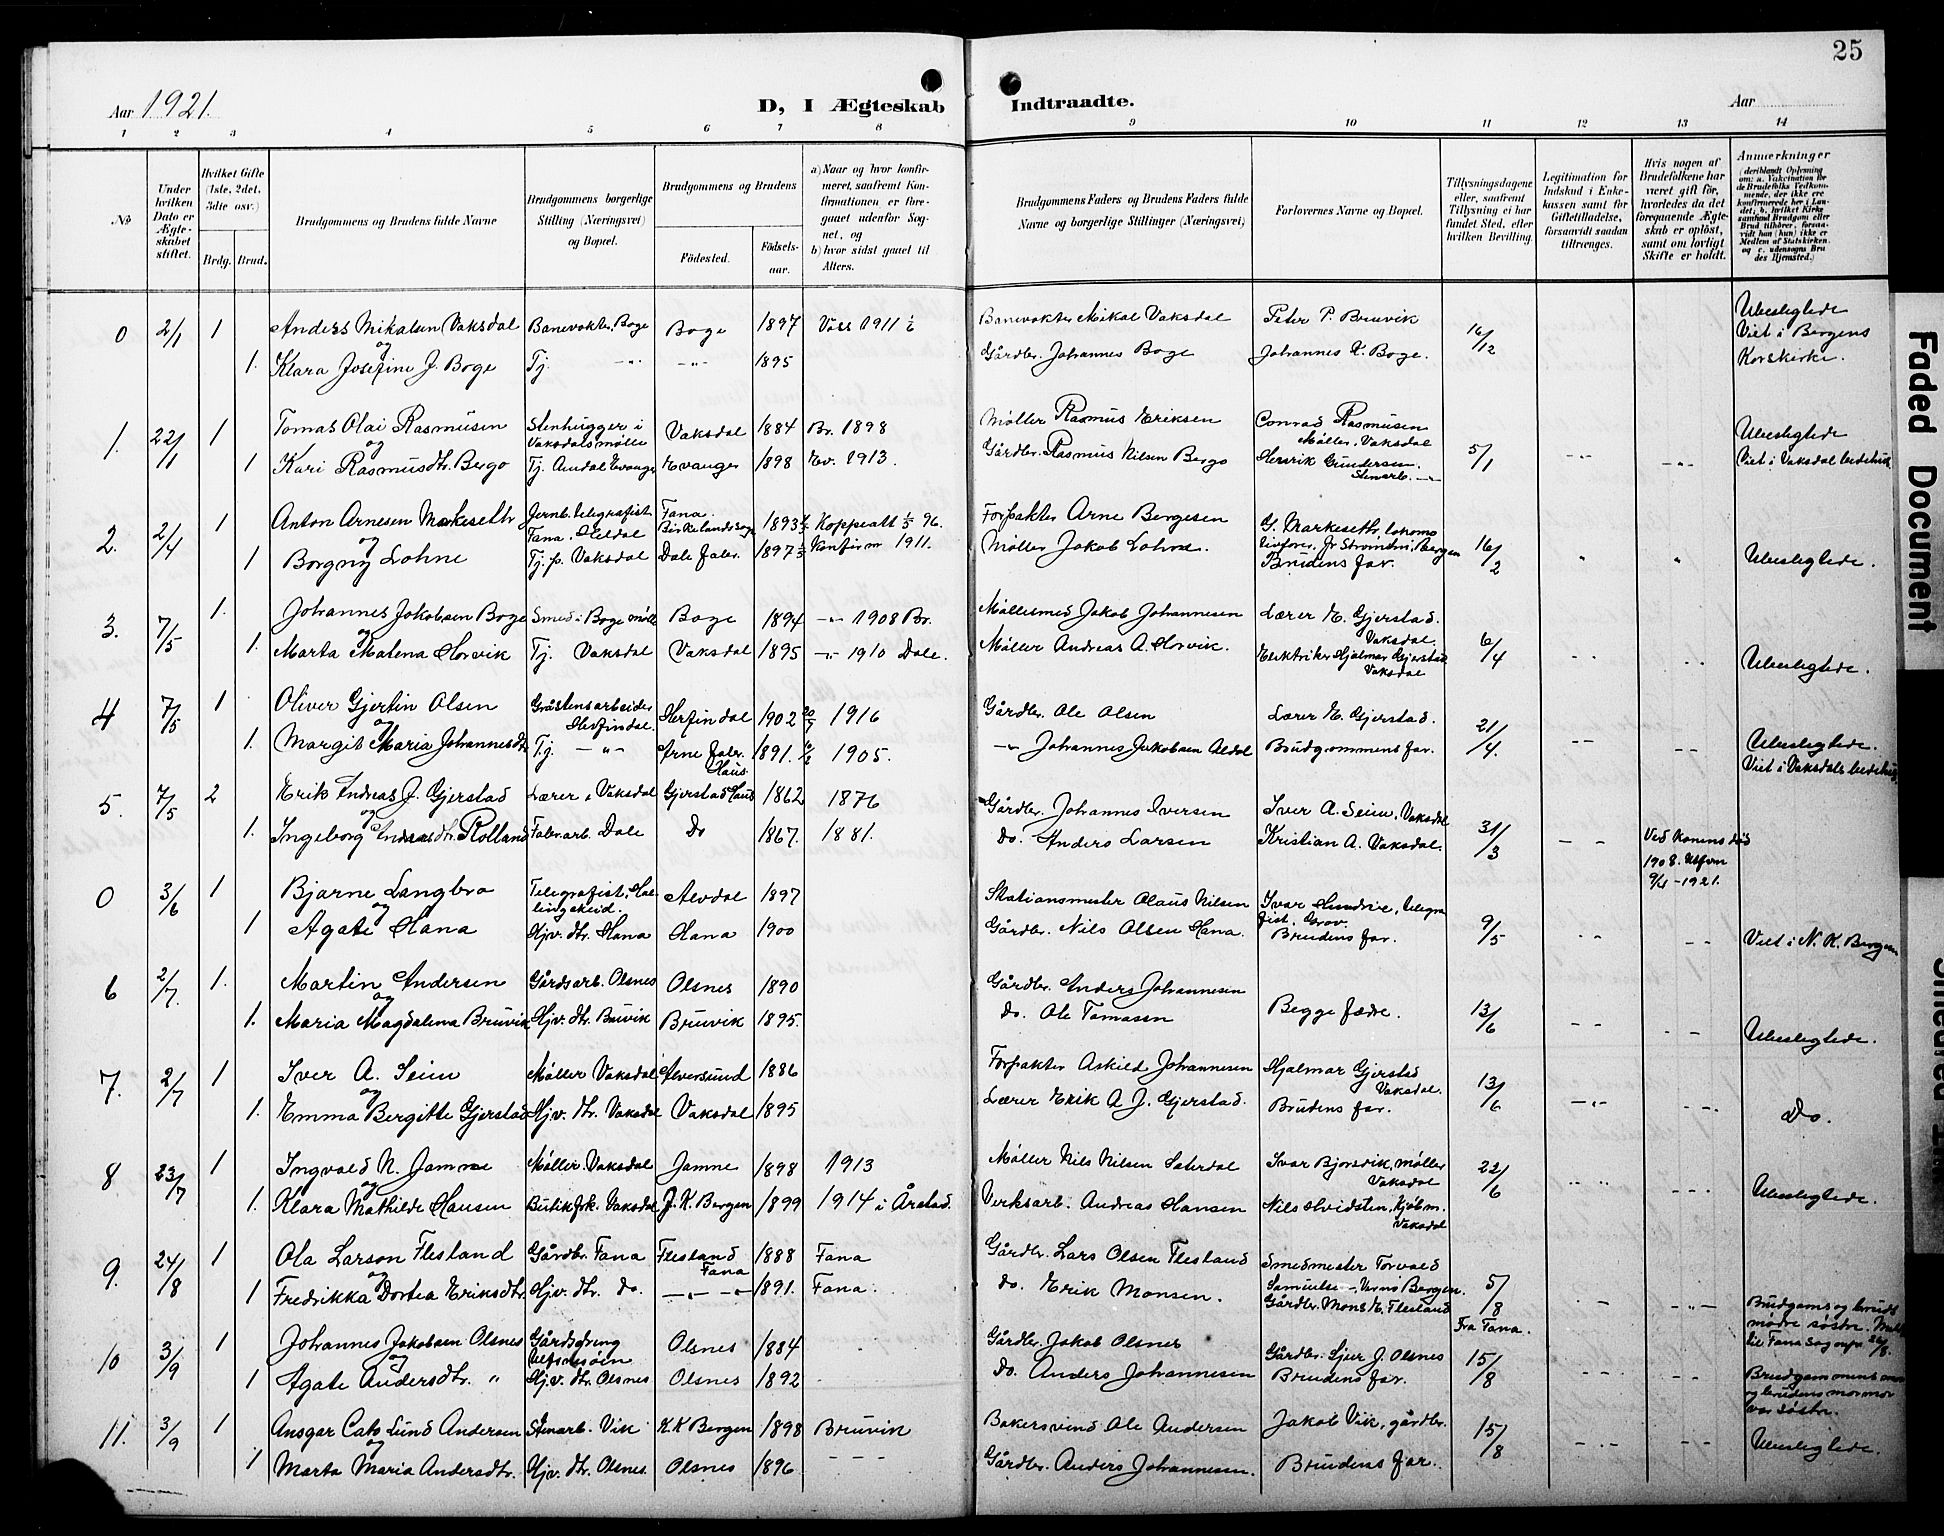 25
Aar 1921.
D, I Ægteskab Indtraadte.
Aar
1 2 3 4 5 6 7 8 9 10 11 12 13 14
No
Under hvilken Dato er Ægteskabet stiftet.
Hvilket Gifte (1ste, 2det, 3die osv.)
Brdg. Brud.
Brudgommens og Brudens fulde Navne
Brudgommens borgerlige Stilling (Næringsvei) og Bopæl.
Brudgommens og Brudens
Fødested.
Fødselsaar.
a) Naar og hvor konfirmeret, saafremt Konfirmationen er foregaaet udenfor Sognet, og
b) hvor sidst gaaet til Alters.
Brudgommens Faders og Brudens Faders fulde Navne og borgerlige Stillinger (Næringsvei)
Forlovernes Navne og Bopæl.
Tillysningsdagene eller, saafremt Tillysning ei har fundet Sted, efter hvilken Bevilling.
Legitimation for Indskud i Enkekassen samt for Giftetilladelse, forsaavidt saadan tiltrænges.
Hvis nogen af Brudefolkene har været gift før, hvorledes da det foregaaende Ægteskab er opløst, samt om lovligt Skifte er holdt.
Anmærkninger
(deriblandt Oplysning om: a. Vakcination for de Brudefolks Vedkommende, der ikke ere konfirmerede her i Landet; b. hvilket Kirkesamfund Brudgom eller Brud tilhører, forsaavidt han (hun) ikke er Medlem af Statskirken, og c. udensogns Brudes Hjemsted.)
0 2/1 1 Anders Mikalsen Vaksdal Banevokter, Boge Boge 1897 Voss 1911 Banevokter Mikal Vaksdal Peter P. Bruvik 16/12 Ubeslegtede
og Viet i Bergens
1. Klara Josefine J. Boge Tj. -"- -"- 1895 Gårdbr. Johannes Boge Johannes K. Boge. Korskirke.
1. 22/1 1 Tomas Olai Rasmusen Stenhugger i Vaksdals mølle Vaksdal 1884 Br. 1898 Møller Rasmus Eriksen Conrad Rasmusen Møller, Vaksdal 5/1 Ubeslegtede
og
1 Kari Rasmusdtr. Bergo Tj. Evanger 1898 Ev. 1913. Gårdbr. Rasmus Nilsen Bergo Henrik Gundersen Stenarb. -"- Viet i Vaksdal bedehus
2. 2/4 1 Anton Arnesen Markeseth Jernb. telegrafist Fana Fana. Birkelandssogn 1893 Koppeatt 96. Forpakter Arne Bergesen G. Markeseth, lokomotivfører, Bergen 16/2
og
1 Borgny Lohne Tj. p. Vaksdal Dale fabr. 1897 Konfirm 1911. Møller Jakob Lohne. Brudens far. Ubeslegtede.
3. 7/5 1. Johannes Jakobsen Boge Smed i Boge mølle Boge 1894 -"- 1908 Br. Møllesmed Jakob Johannesen Lærer E. Gjerstad. Vaksdal 6/4
og
1. Marta Malena Horvik Tj. Vaksdal Vaksdal 1895 -"- 1910 Dale. Møller Andreas A. Horvik. Elektriker Hjalmar Gjerstad Vaksdal Ubeslegtede.
4 7/5 1 Oliver Gjertin Olsen Gråstensarbeider Herfindal. Herfindal 1902 20/7 1916 Gårdbr. Ole Olsen Lærer E. Gjerstad. 21/4.
og
1. Margit Maria Johannesdtr Tj. -"- Arne fabr. Haus. 1891. 1905. -"- Johannes Jakobsen Aldal Brudgommens far. Ubeslegtede. Viet i Vaksdals bedehus
5. 7/5 2 Erik Andreas J. Gjerstad Lærer i Vaksdal Gjerstad Haus 1862 1876 Gårdbr. Johannes Iversen Iver A. Seim, Vaksdal 31/3
og
1. Ingeborg Andersdtr. Rolland Fabr.arb. Dale Do 1867. 1881. Do. Anders Larsen Kristian A. Vaksdal. Ved konens død 1908. 9/4-1921.
0 3/6 1 Bjarne Langbro Telegrafist, Hallingskeid. Alvdal 1897 Stationsmester Olaus Nilsen Ivar telegrafist. 9/5
og
1 Agate Hana Hjv. dtr. Hana Hana 1900 Gårdbr. Nils Olsen Hana. Brudens far. Viet i N. K. Bergen
6 2/7. 1. Martin Andersen Gårdsarb. Olsnes Olsnes 1890 Gårdbr. Anders Johannesen 13/6
og
1. Maria Magdalena Bruvik Hjv. dtr. Bruvik Bruvik 1895. Do. Ole Tomasen Begge fædre. Ubeslegtede.
7. 2/7 1 Iver A. Seim Møller Vaksdal Alversund 1886 Forpakter Askild Johannesen Hjalmar Gjerstad Vaksdal. 13/6
og
1. Emma Bergitte Gjerstad Hjv. dtr. Vaksdal Vaksdal 1895 Lærer Erik A. J. Gjerstad. Brudens far. Do.
8 23/7 1 Ingvald N. Jamne Møller. Vaksdal Jamne 1898 1913 Møller Nils Nilsen Ivar Bjorsvik, møller Vaksdal 22/6
og
1. Klara Mathilde Hansen Butikfrk. Vaksdal J. K. Bergen 1899 1914 i Årstad. Verksarb. Andreas Hansen Nils Hvidsten, Kjøbm. Vaksdal Ubeslegtede.
9. 24/8 1 Ola Larson Flesland Gårdbr. Fana Flesland Fana 1888 Fana Gårdbr. Lars Olsen Flesland Smedmester Torvald 5/8
og
1 Fredrikka Dortea Eriksdtr. Hjv. dtr. do. -"- -"- 1891. Fana. do. Erik Monsen. Bergen. Gårdbr. Mons E. Flesland Fra Fana. Brudgoms og bruds mødre søstre. til Fana
10 3/9 1 Johannes Jakobsen Olsnes Gårdsdreng Olsnes 1884 Gårdbr. Jakob Olsnes Gårdbr. Sjur J. Olsnes 15/8
og
1 Agate Andersdtr. " Hjv. dtr. Olsnes Olsnes 1892 Do. Anders Johannesen Brudens far. Brudgommens mor og brudens mormor var søstre.
11. 3/9 1 Ansgar Cato Lund Andersen Stenarb. Vik K.K Bergen 1898 Bruvik Bakersvend Ole Andersen Jakob Vik, gårdbr. 15/8 Ubeslegtede.
og
1 Marta Maria Andersdtr. Hjv. dtr. Olsnes Olsnes 1896. - - - Gårdbr. Anders Johannesen. Brudens far.
Faded Document